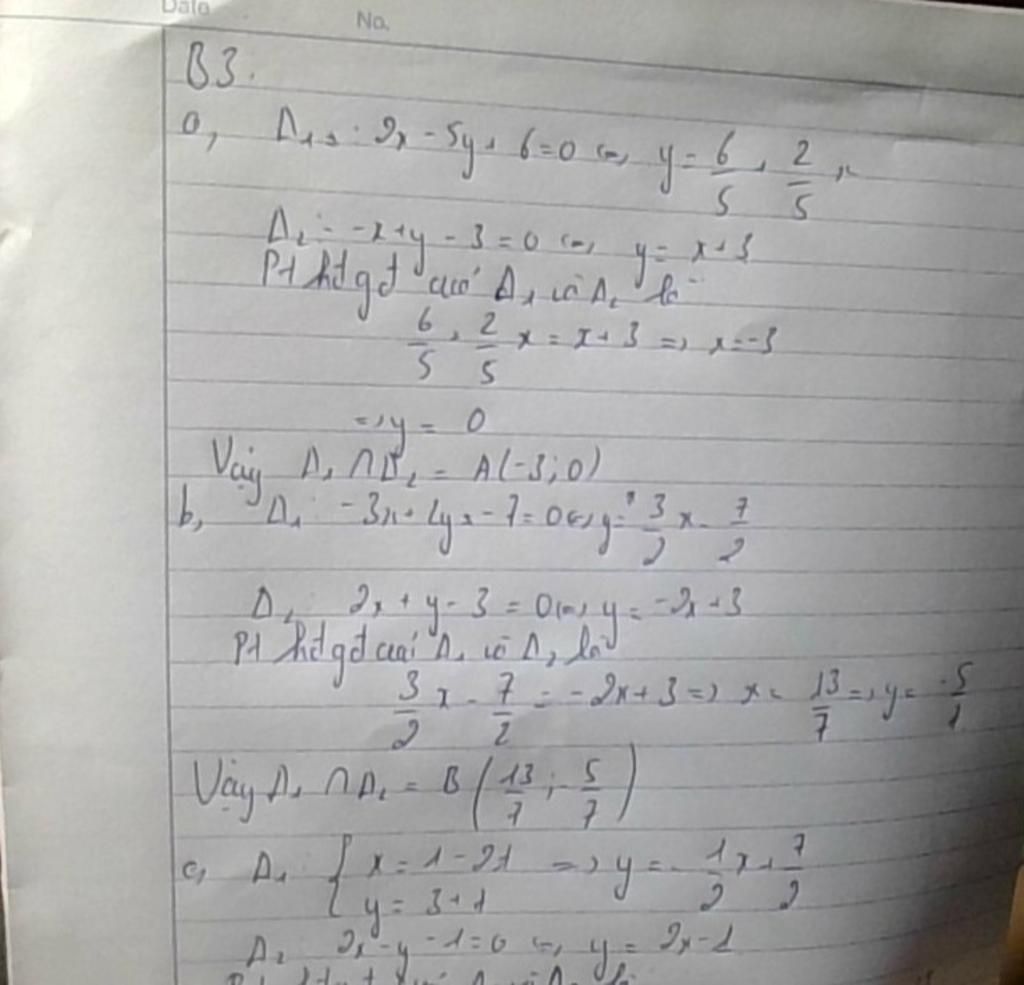 Date No.
B3.
a, Δ₁ : 2x - 5y + 6 = 0 <=> y = 6/5 + 2/5 x
Δ₂ : -x + y - 3 = 0 <=> y = x + 3
Pt hđgđ của Δ₁ và Δ₂ là
6/5 + 2/5 x = x + 3 => x = -3
=> y = 0
Vậy Δ₁ ∩ Δ₂ = A(-3; 0)
b, Δ₁ -3x + 2y + 7 = 0 <=> y = 3/2 x - 7/2
Δ₂ 2x + y - 3 = 0 <=> y = -2x + 3
Pt hđgđ của Δ₁ và Δ₂ là
3/2 x - 7/2 = -2x + 3 => x = 13/7 => y = -5/7
Vậy Δ₁ ∩ Δ₂ = B (13/7 ; -5/7)
c, Δ₁ { x = 1 - 2t => y = -1/2 x + 7/2
y = 3 + t
Δ₂ 2x - y - 1 = 0 <=> y = 2x - 1